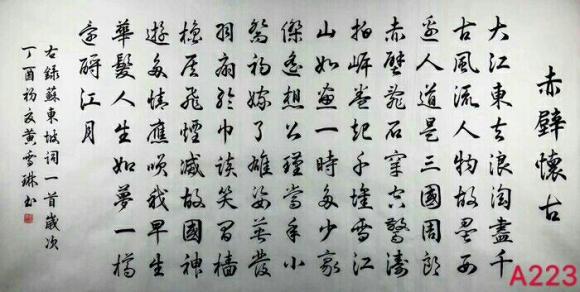 赤壁懷古
大江東去浪淘盡千
古風流人物故壘西
邊人道是三國周郎
赤壁亂石穿空驚濤
拍岸卷起千堆雪江
山如畫一時多少豪
傑遙想公瑾當年小
喬初嫁了雄姿英發
羽扇綸巾談笑間檣
櫓灰飛煙滅故國神
遊多情應笑我早生
華髮人生如夢一樽
還酹江月
右錄蘇東坡詞一首歲次
丁酉初夏黄雪琳书
A223